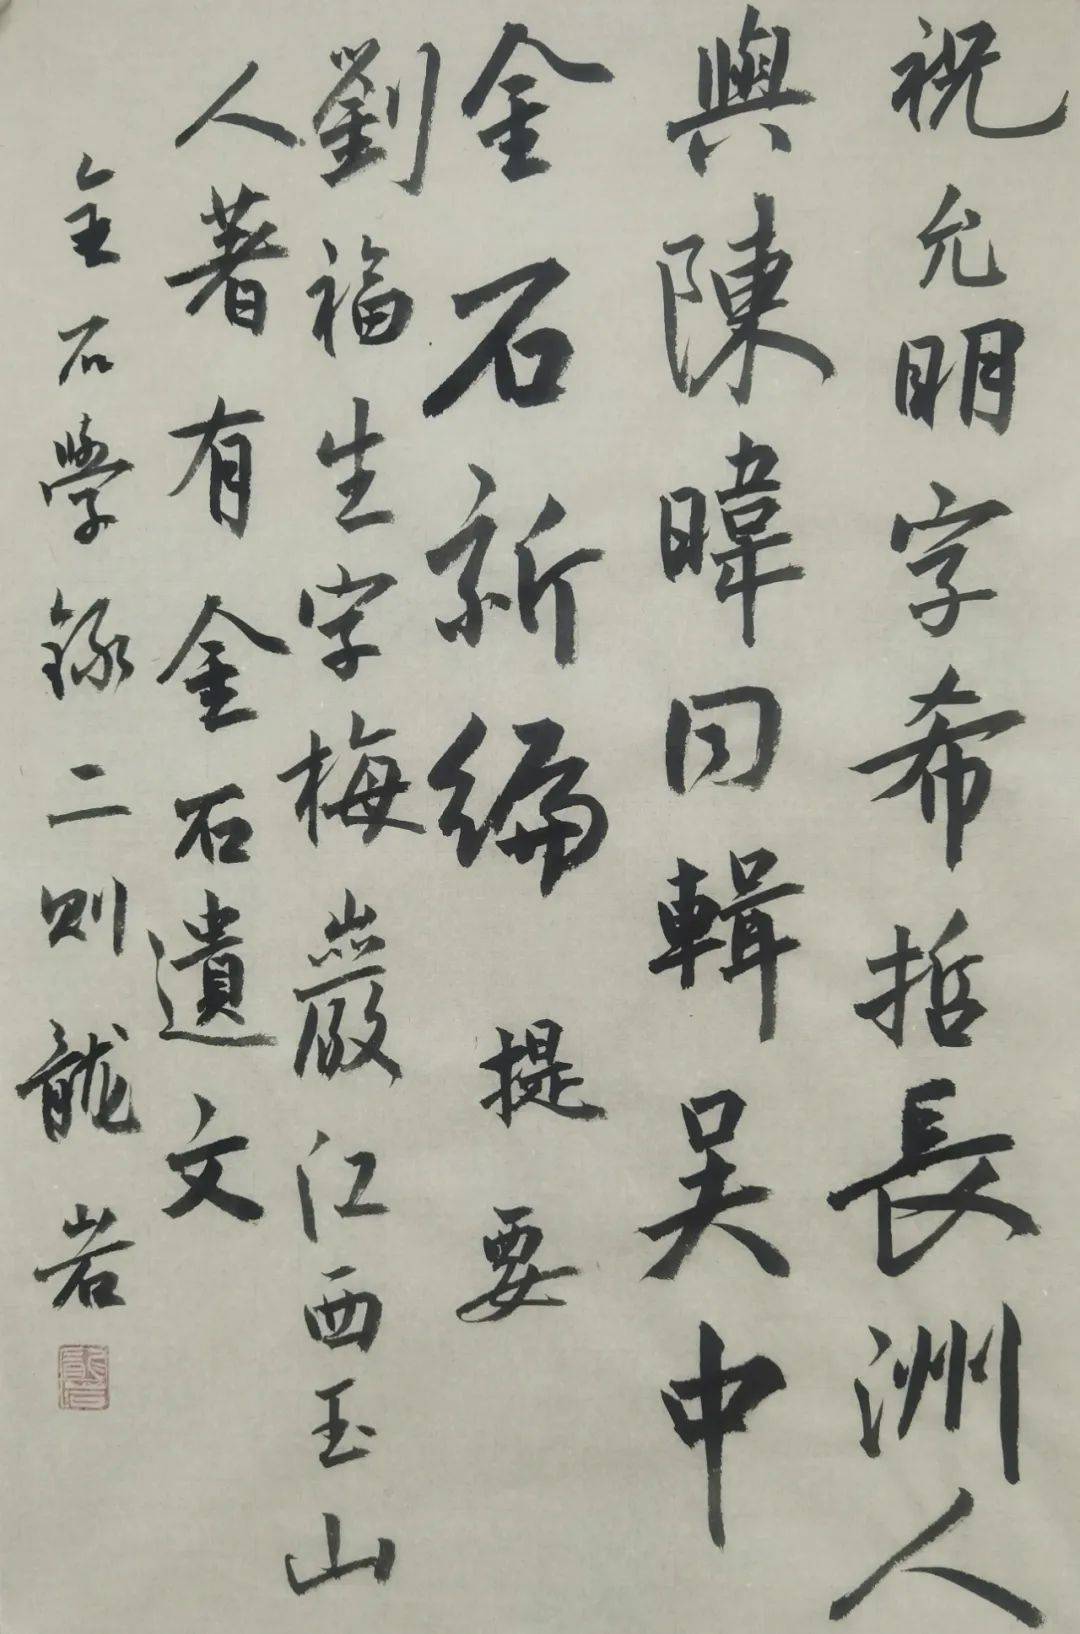 祝允明字希哲長洲人
與陳暐同輯吴中
金石新編 提要
劉福生字梅巖江西玉山
人著有金石遺文
金石學録二則龍岩